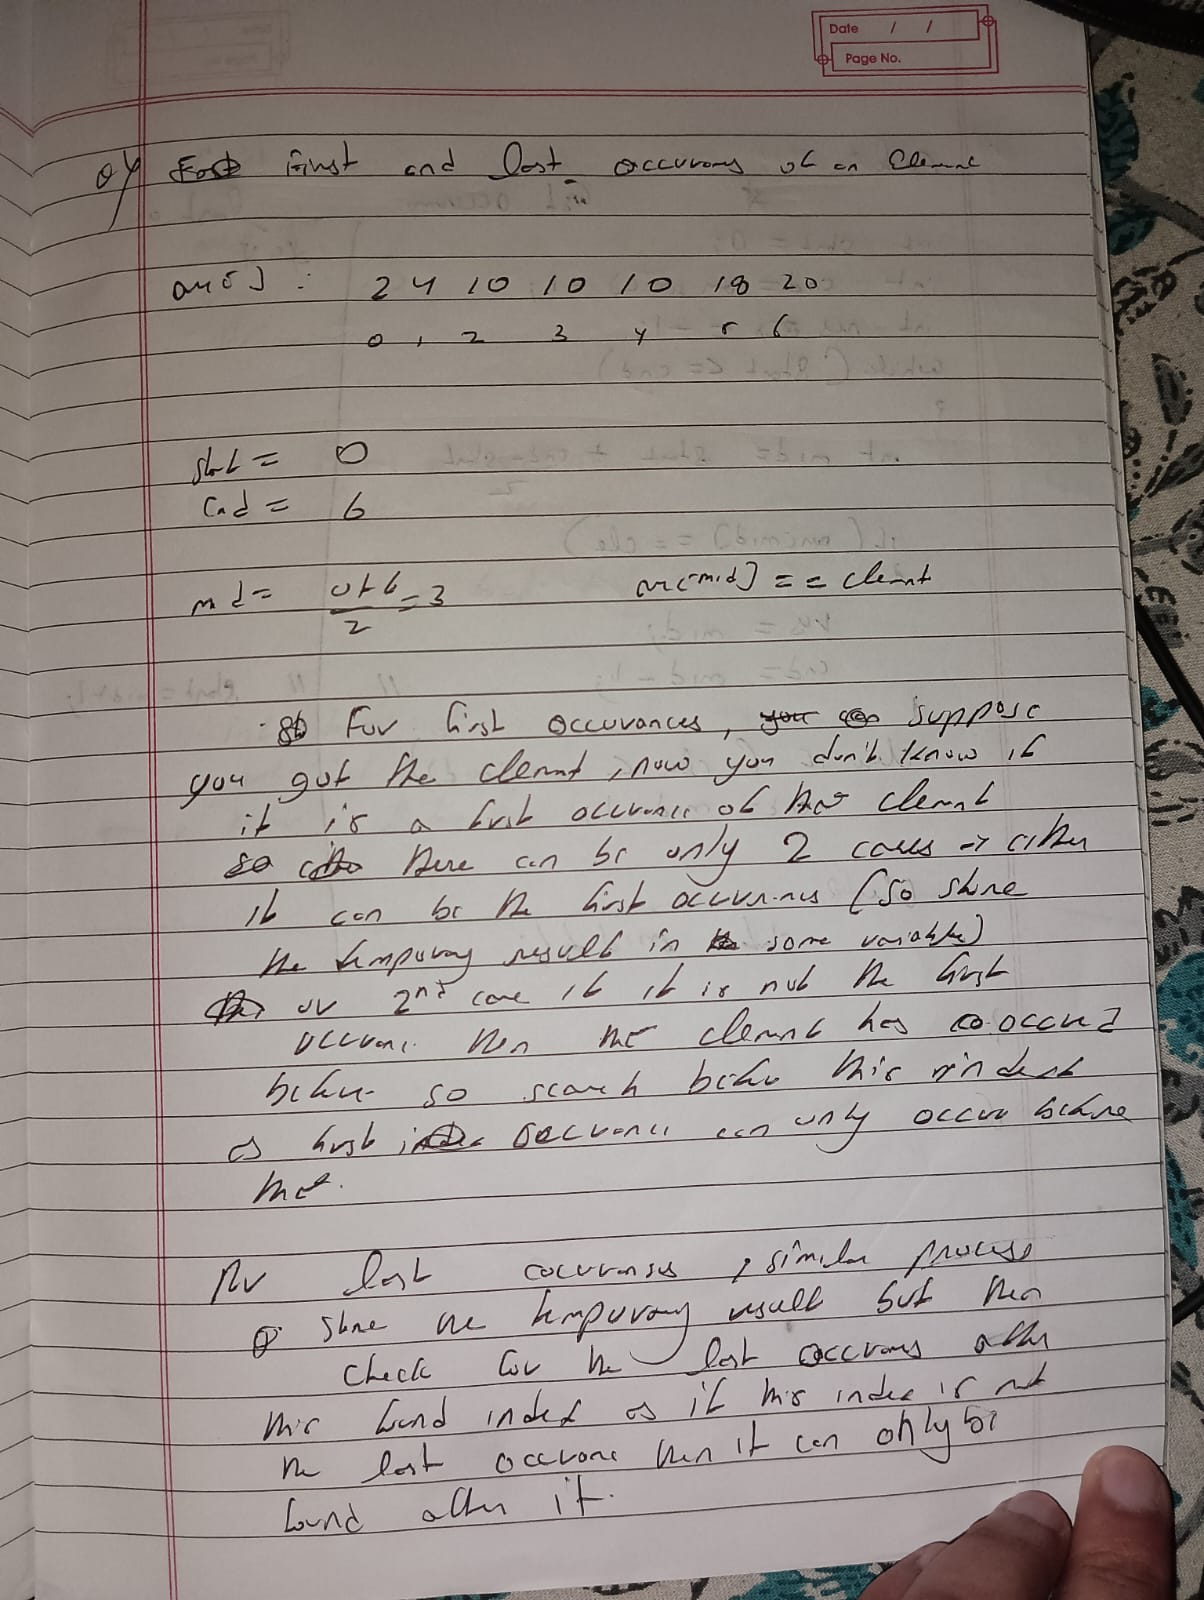 Date / /
Page No.
Q4 First and last occurrences of an element
arr[] : 2 4 10 10 10 18 20
0 1 2 3 4 5 6
start = 0
end = 6
mid = 0+6/2 = 3 arr[mid] == element
For first occurances, suppose
you got the element, now you don't know if
it is a first occurance of that element
so there can be only 2 cases → either
it can be the first occurrences (so store
the temporary result in some variable)
or 2nd case if it is not the first
occurance then the element has occured
before so search before this index
as first occurance can only occur before
that.
For last occurances, similar process
store the temporary result but then
check for the last occurrences after
this found index as if this index is not
the last occurance then it can only be
found after it.